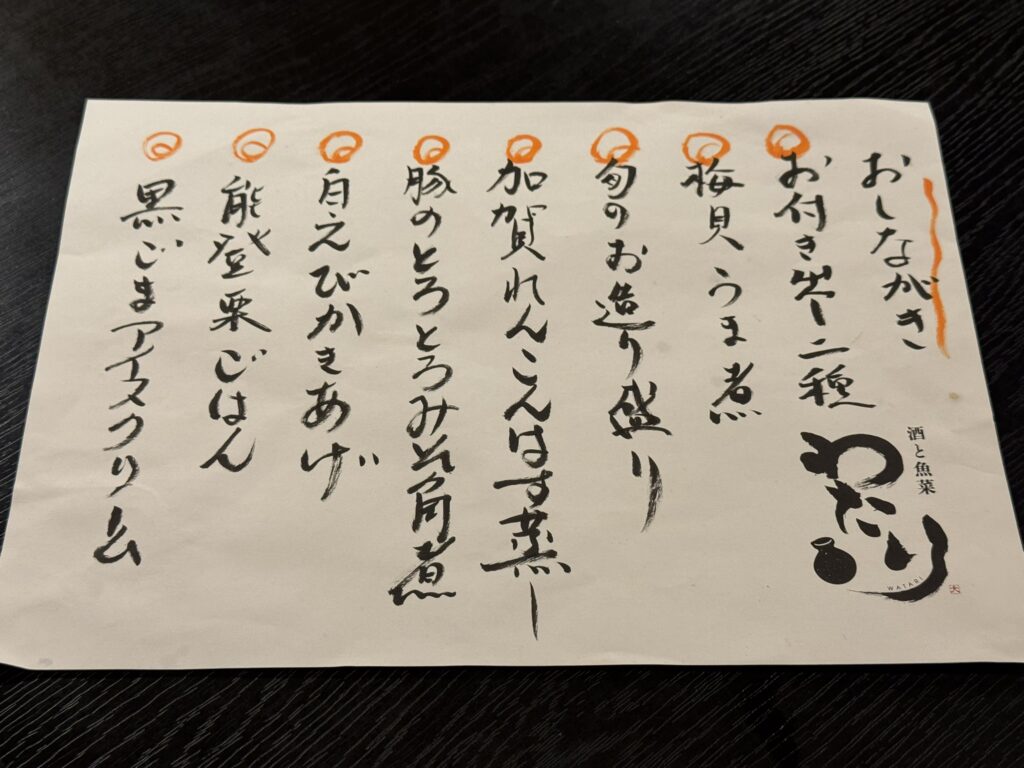 おしながき
お付き出し二種
梅貝うま煮
旬のお造り盛り
加賀れんこんはす蒸し
豚のとろとろみそ角煮
白えびかきあげ
能登栗ごはん
黒ごまアイスクリーム
酒と魚菜
わたり
WATARI